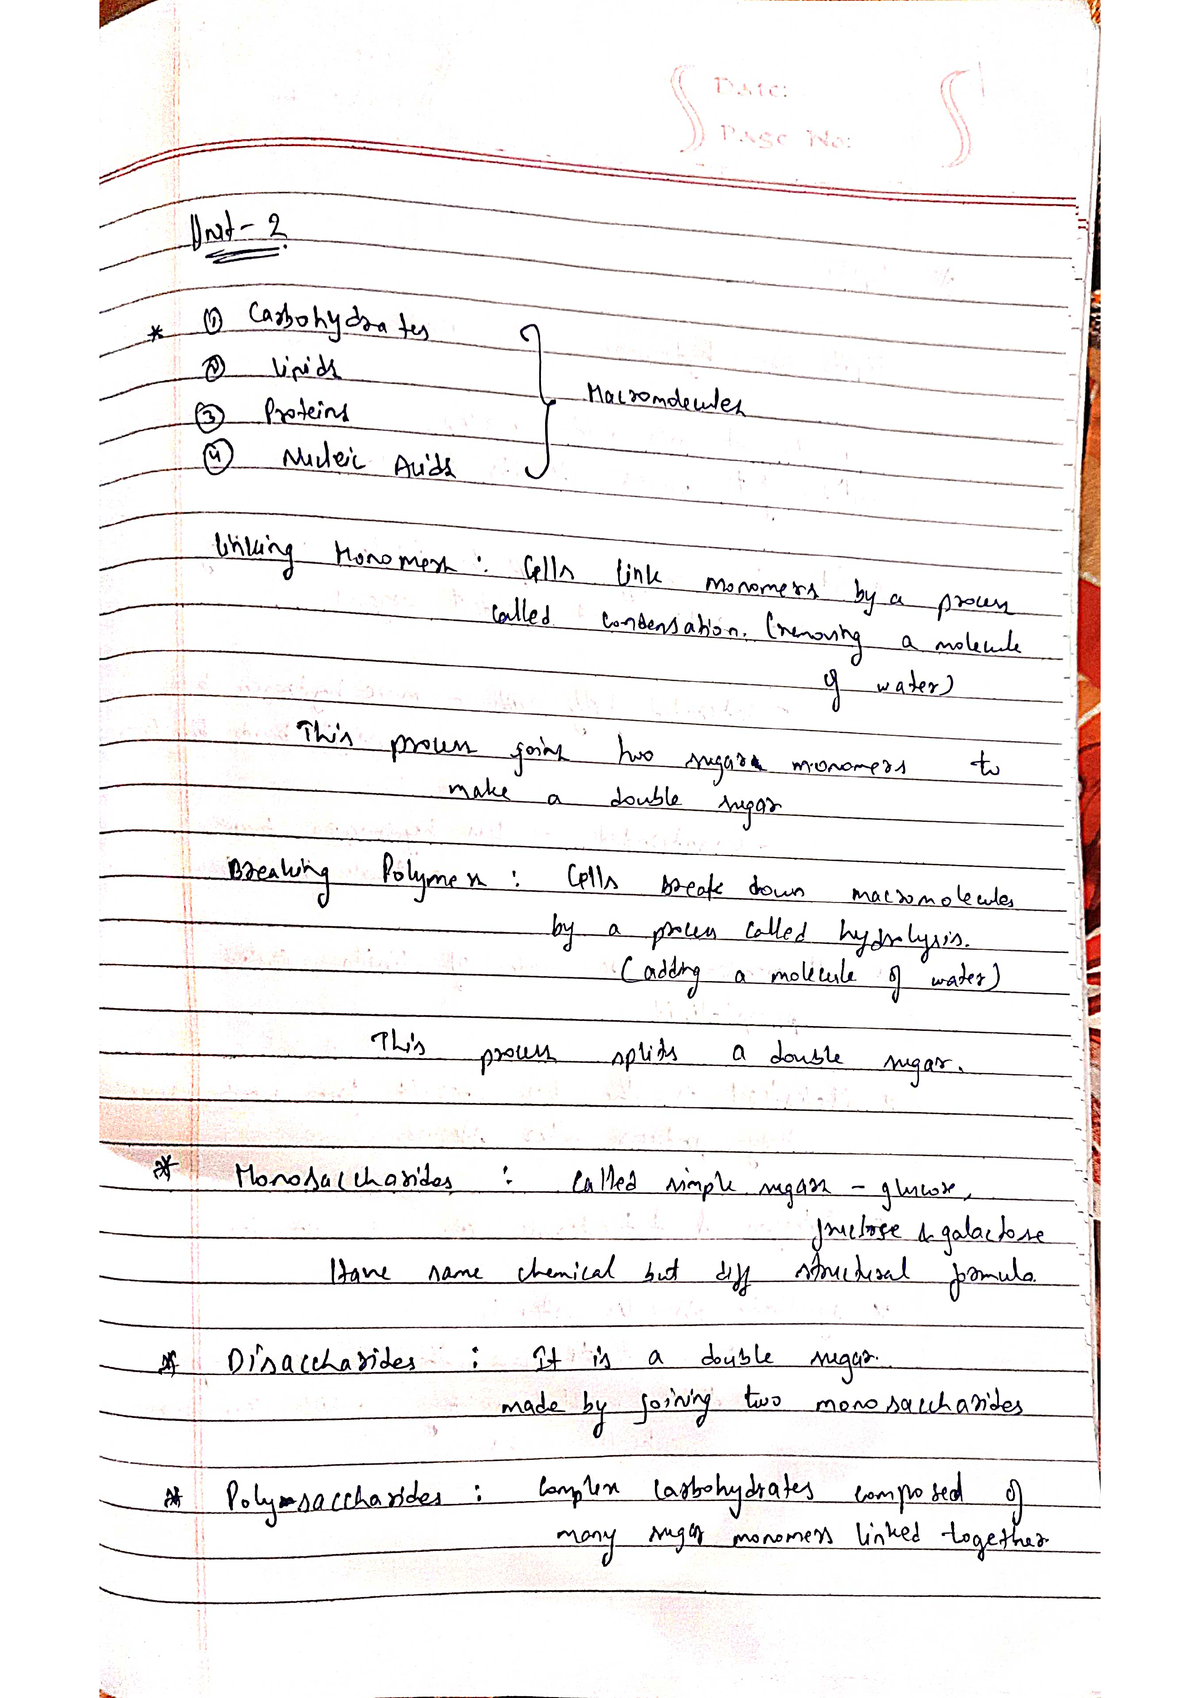 Date:
Page No:
Unit - 2
* ① Carbohydrates
② Lipids
③ Proteins
④ Nucleic Acids
Macromolecules
Linking Monomers : Cells link monomers by a process
called condensation. (removing a molecule
of water)
This process joins two sugar monomers to
make a double sugar
Breaking Polymers : Cells break down macromolecules
by a process called hydrolysis.
(adding a molecule of water)
This process splits a double sugar.
* Monosaccharides : Called simple sugars - glucose,
fructose & galactose
Have same chemical but diff structural formula.
* Disaccharides : It is a double sugar.
made by joining two monosaccharides
* Polysaccharides : Complex Carbohydrates composed of
many sugar monomers linked together